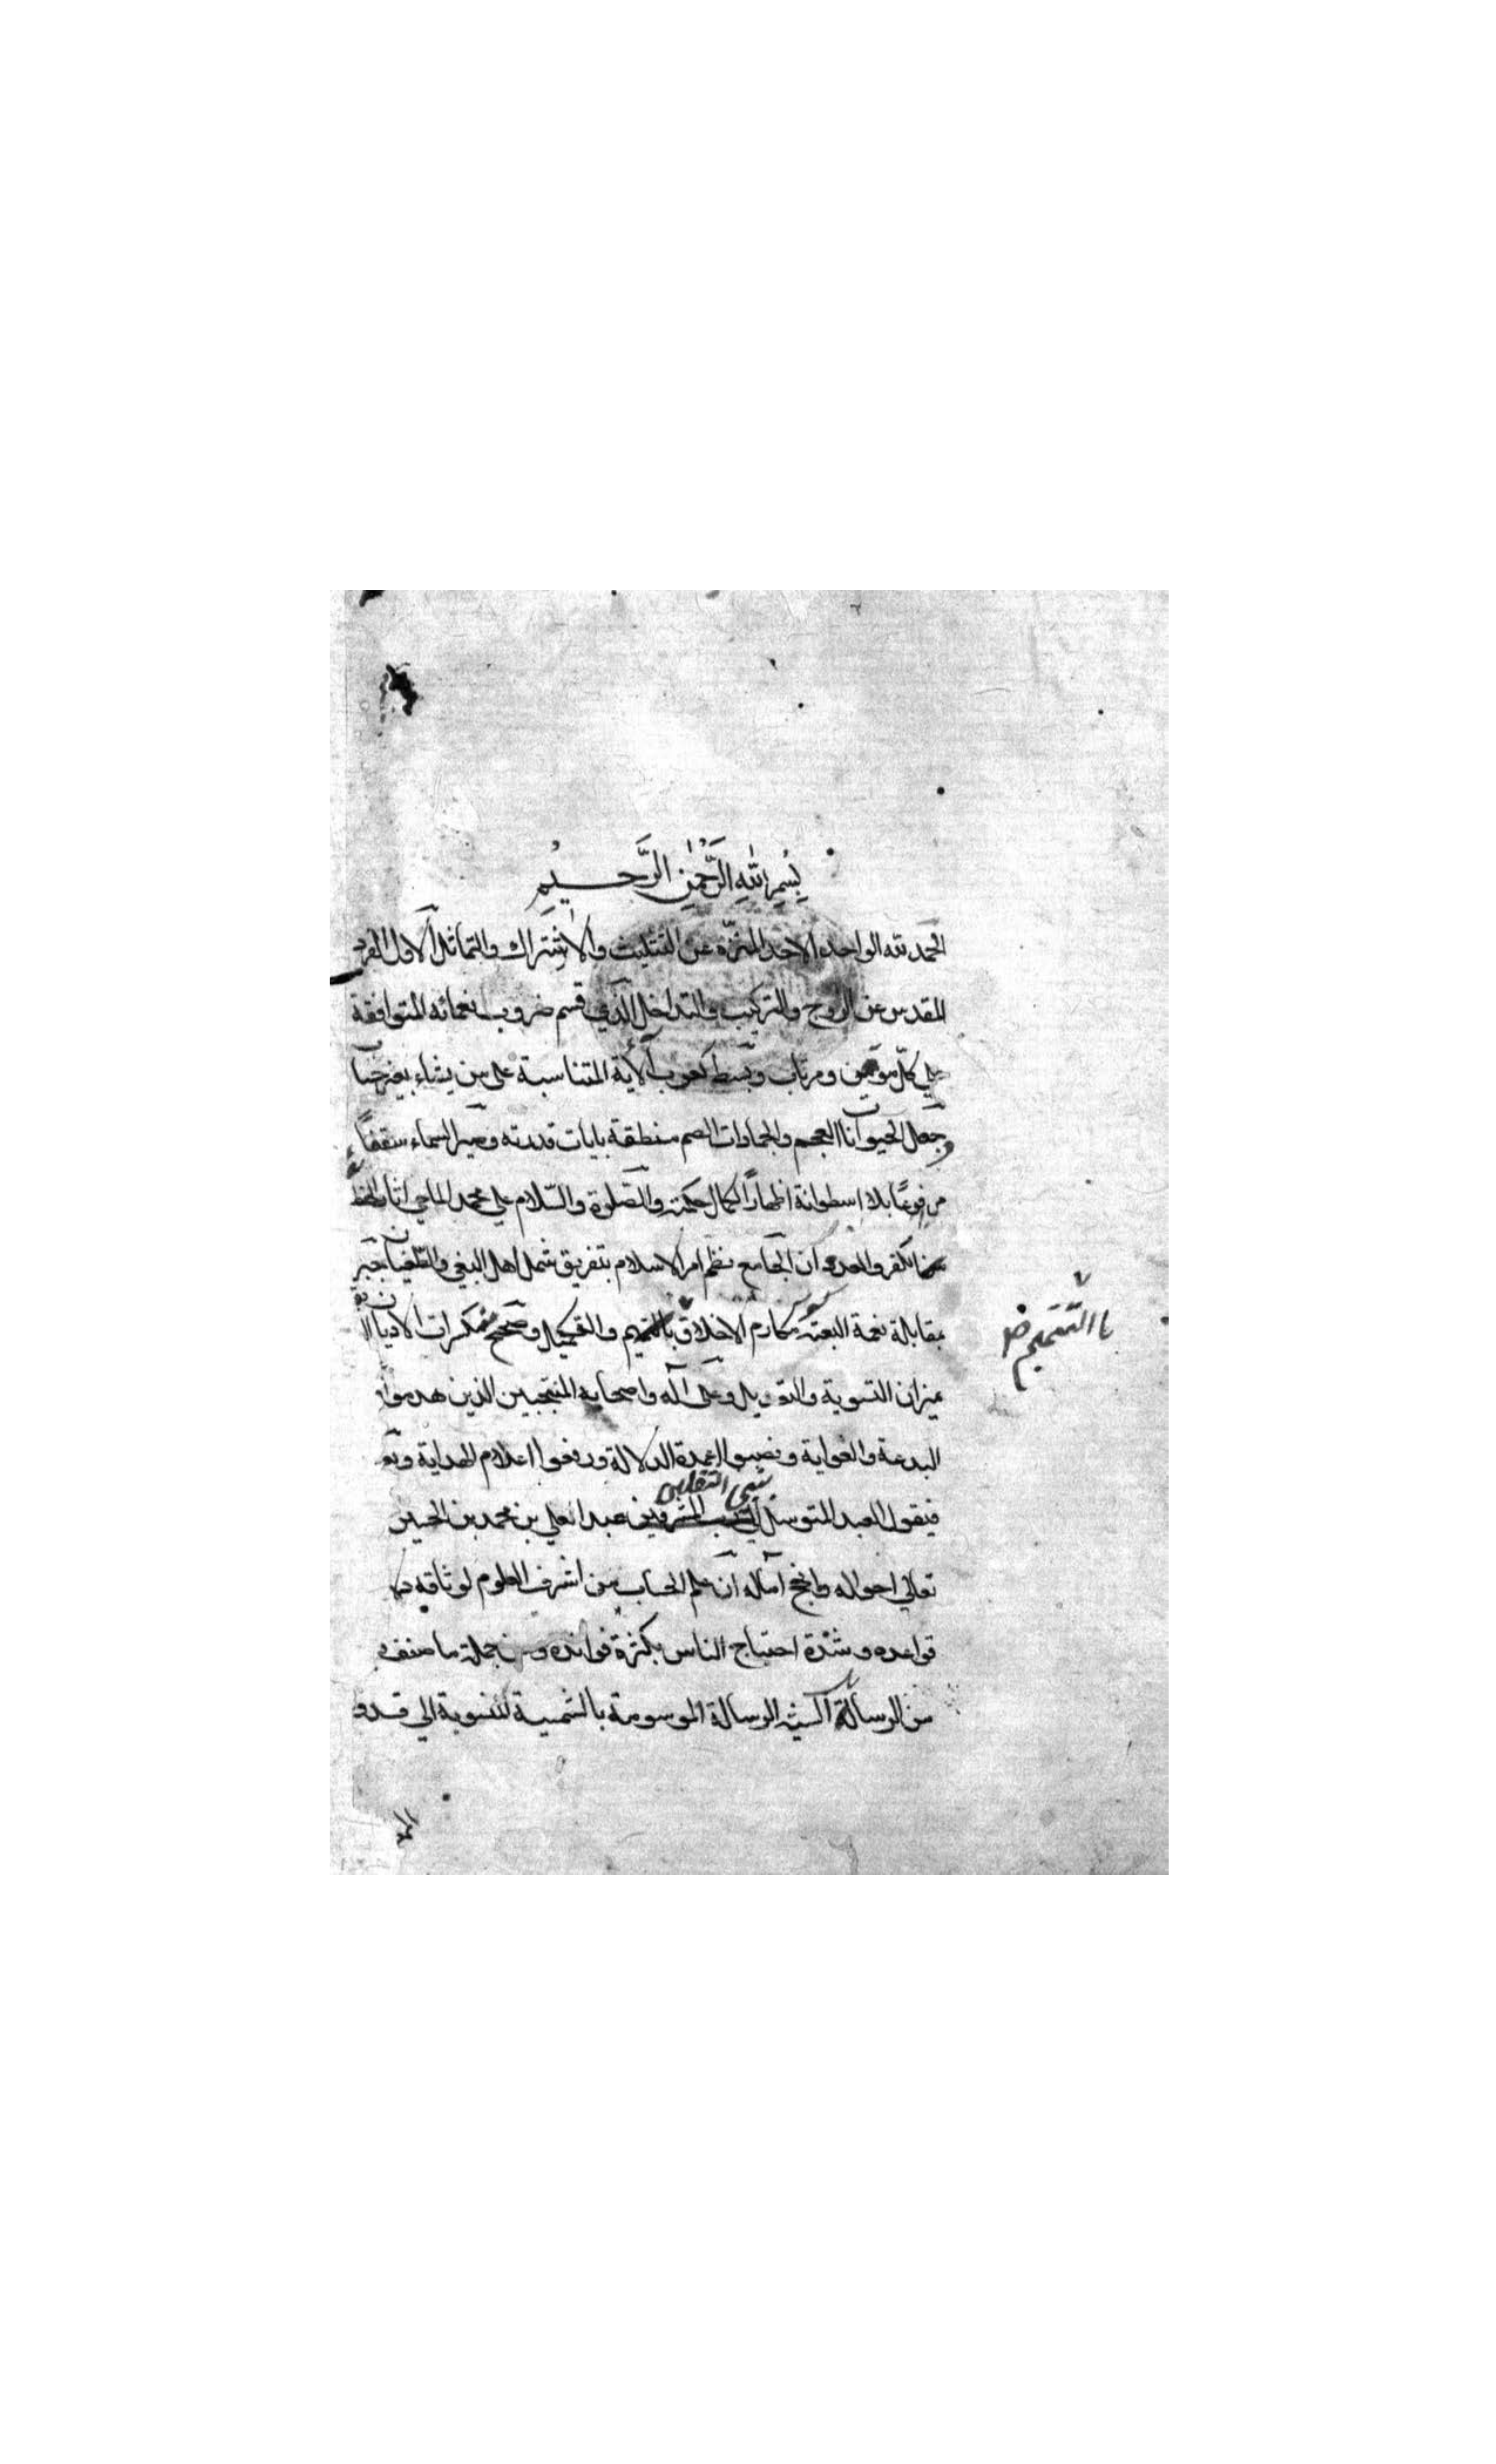 بِسْمِ اللّٰهِ الرَّحْمٰنِ الرَّحِيْمِ
الحمد لله الواحد الاحد المنزّه عن التثليث والاشتراك والتماثل الاول الفرد
المقدس عن الزوج والتركيب والتداخل الذي قسم ضروب نعمائه المتوافقة
على كلّ موقن ومرتاب وبسط كعوب آلاية المتناسبة على من يشاء بغير حساب
وجعل الحيوانات العجم والجمادات الصم منطقة بايات قدرته وصير السماء سقفاً
مرفوعًا بلا اسطوانة اظهارًا لكمال حكمته والصّلوة والسّلام على محمد الماحي
الكفر والعدوان الجامع نظم امر الاسلام بتفريق شمل اهل البغي والطغيان
مقابلة نعمة البعثة مكارم الاخلاق بالتتميم والتكميل وصحح الاديان
با التتميم
ميزان التسوية والتعديل وعلى آله واصحابه المنتجبين الذين هدموا
البدعة والغواية ونصبوا اعمدة الدلالة ورفعوا اعلام الهداية
فيقول العبد المتوسل عبد العلي بن محمد بن الحسين
تعالى احواله وانجح آماله انّ علم الحساب من اشرف العلوم لوثاقة
قواعده وشدّة احتياج الناس بكثرة فوائده ومن جملة ما صنف
من الرسالة الرسالة الموسومة بالشمسية المنسوبة الى